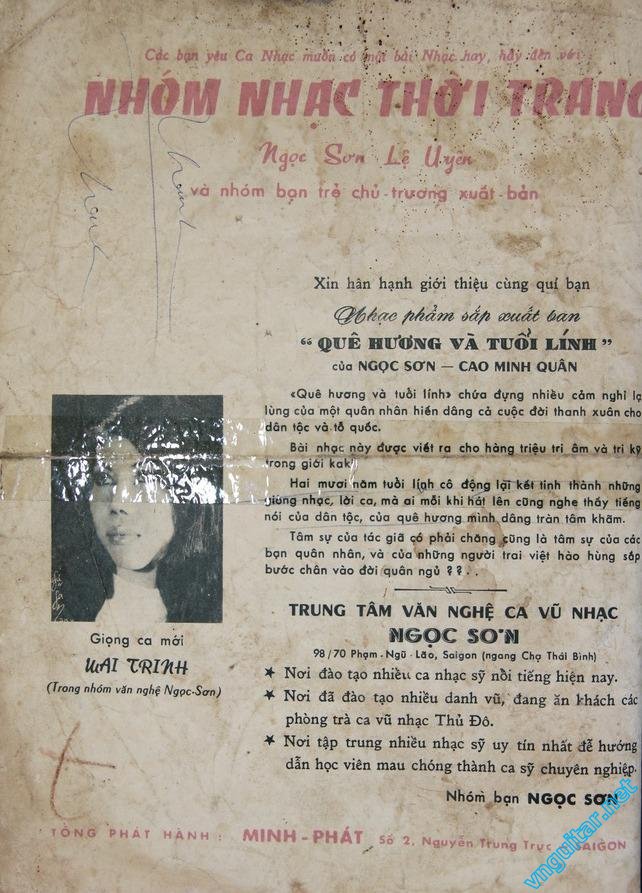 Các bạn yêu Ca Nhạc muốn có một bài Nhạc hay, hãy đến với
NHÓM NHẠC THỜI TRANG
Ngọc Sơn Lệ Uyên
và nhóm bạn trẻ chủ-trương xuất-bản
Xin hân hạnh giới thiệu cùng quí bạn
Nhạc phẩm sắp xuất bản
“ QUÊ HƯƠNG VÀ TUỔI LÍNH ”
của NGỌC SƠN — CAO MINH QUÂN
«Quê hương và tuổi lính» chứa đựng nhiều cảm nghỉ lạ
lùng của một quân nhân hiến dâng cả cuộc đời thanh xuân cho
dân tộc và tổ quốc.
Bài nhạc này được viết ra cho hàng triệu tri âm và tri kỷ
trong giới kaki
Hai mươi năm tuổi lính cô động lại kết tinh thành những
giòng nhạc, lời ca, mà ai mỗi khi hát lên cũng nghe thấy tiếng
nói của dân tộc, của quê hương mình dâng tràn tâm khãm.
Tâm sự của tác giã có phải chăng cũng là tâm sự của các
bạn quân nhân, và của những người trai việt hào hùng sắp
bước chân vào đời quân ngủ ??..
Giọng ca mới
MAI TRINH
(Trong nhóm văn nghệ Ngọc-Sơn)
TRUNG TÂM VĂN NGHỆ CA VŨ NHẠC
NGỌC SƠN
98/70 Phạm-Ngũ-Lão, Saigon (ngang Chợ Thái Bình)
★ Nơi đào tạo nhiều ca nhạc sỹ nổi tiếng hiện nay.
★ Nơi đã đào tạo nhiều danh vũ, đang ăn khách các
phòng trà ca vũ nhạc Thủ Đô.
★ Nơi tập trung nhiều nhạc sỹ uy tín nhất để hướng
dẫn học viên mau chóng thành ca sỹ chuyên nghiệp.
Nhóm bạn NGỌC SƠN
TỔNG PHÁT HÀNH : MINH-PHÁT Số 2, Nguyễn Trung Trực SAIGON
vnguitar.net